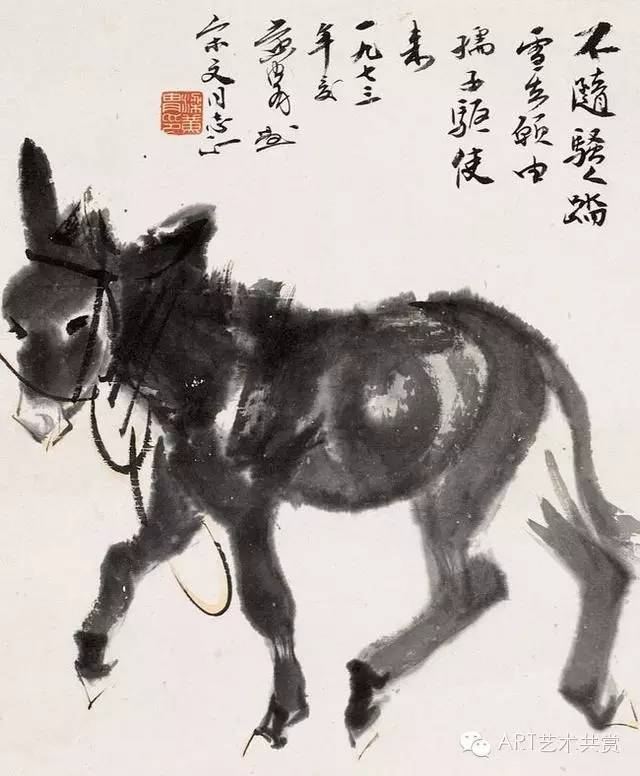 不隨騷人踏
雪去願由
孺子驅使
来
一九七三
年
黄胄畫
宗文同志正
梁黄胄印
ART艺术共赏